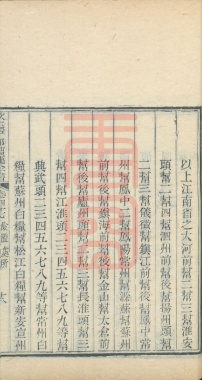 以上江南省之大河前幫二幫三幫淮安
頭幫二幫四幫泗州前幫後幫揚州頭幫
二幫三幫儀徵幫鎮江前幫後幫鳳中常
州幫鳳中二幫鳳陽常州幫滁蘇幫蘇州
前幫後幫鎮海前幫後幫金山幫太倉前
幫後幫廬州頭幫二幫三幫長淮頭幫三
幫四幫江淮頭二三四五六七八九等幫
興武頭二三四五六七八九等幫常州白
糧幫蘇州白糧幫松江白糧幫新安宣州